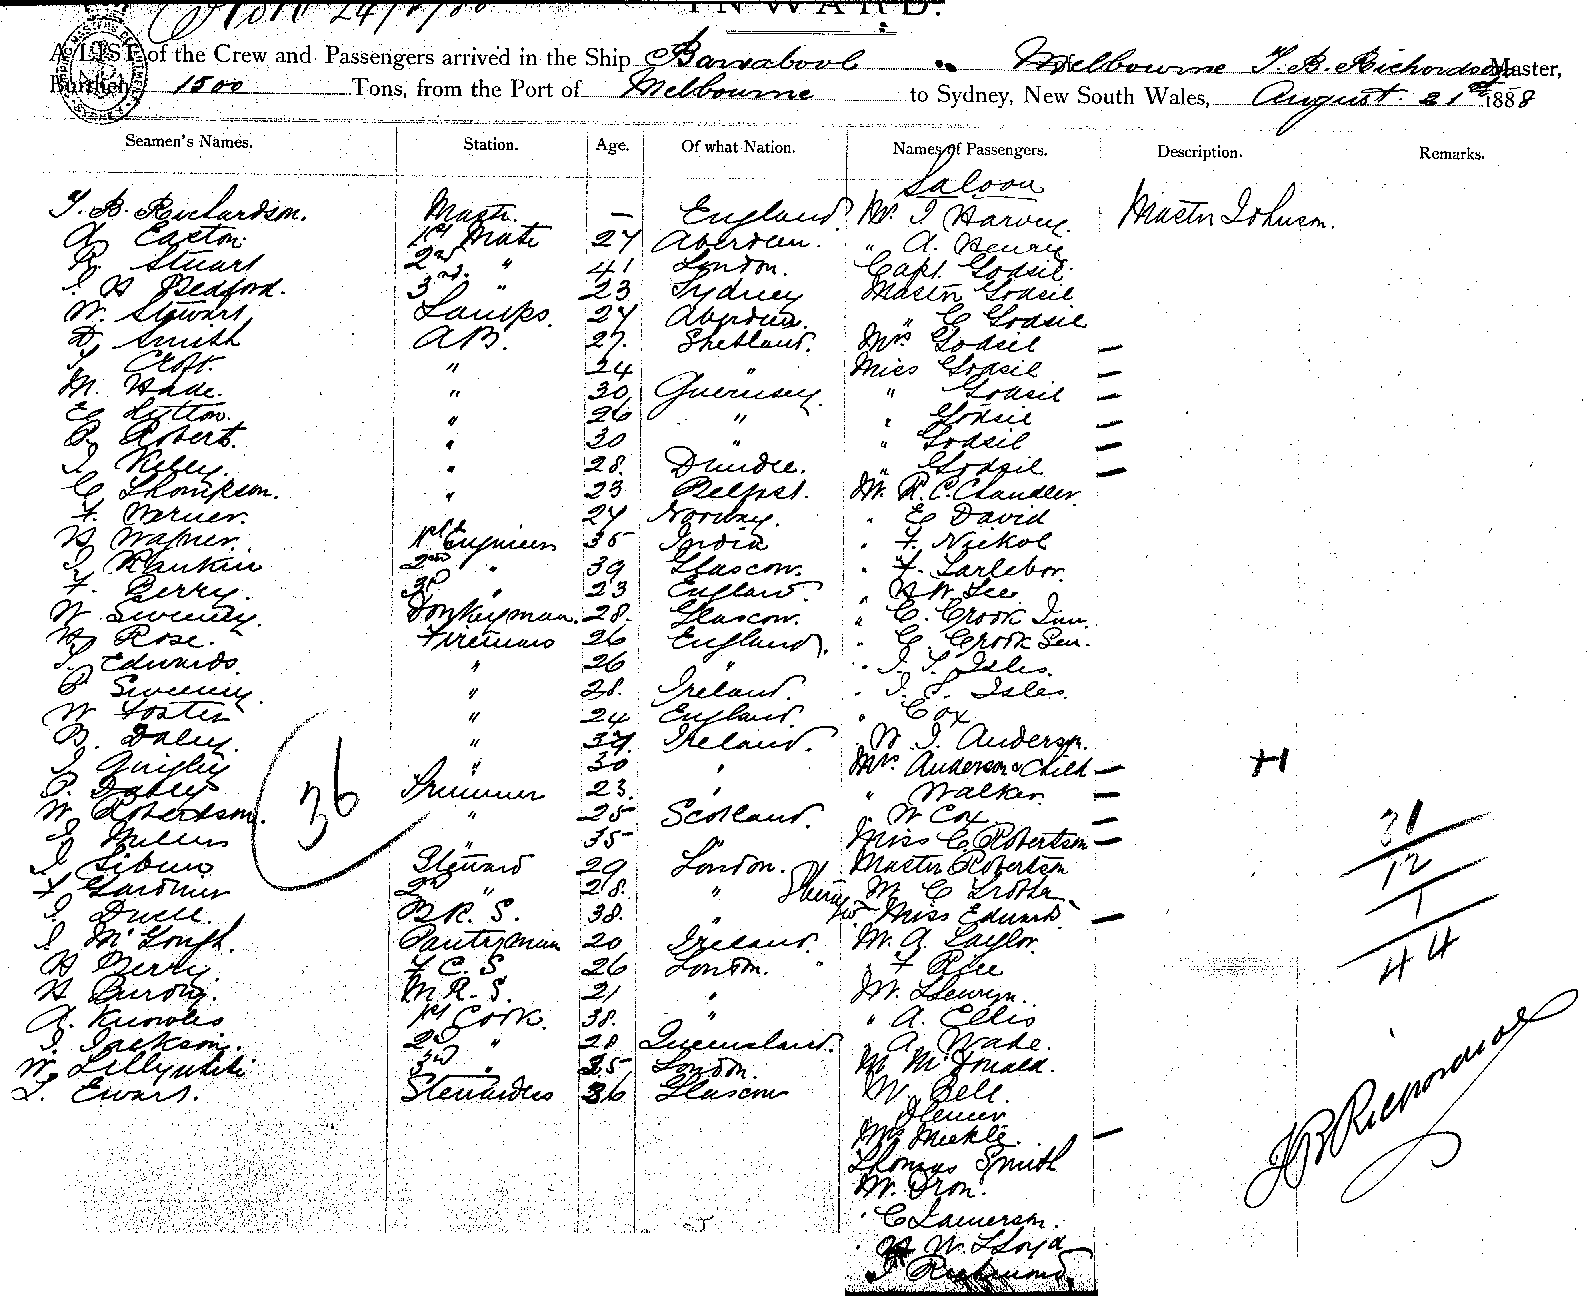 INWARD.
A LIST of the Crew and Passengers arrived in the Ship Barrabool Melbourne T. B. Richardson Master,
Burthen 1500 Tons, from the Port of Melbourne to Sydney, New South Wales, August 21st 1888
Seamen's Names. Station. Age. Of what Nation. Names of Passengers. Description. Remarks.
Saloon
T. B. Richardson. Mastr. — England. Mr. J Harvey. Master Johnson.
A. Easton. 1st Mate 27 Aberdeen. " A. Henry
R. Stuart 2nd " 41 London. Capt. Godsil.
J. H Bedford. 3rd. " 23 Sydney Master Godsil
W. Stewart Lamps. 27 Aberdeen. " C Godsil
D. Smith AB. 27. Shetland. Mrs Godsil —
Croft. " 24 " Miss Godsil —
M. Wade. " 30 Guernsey. " Godsil —
" 26 " " Godsil —
P. Robert. " 30 " " Godsil —
J. Kelly. " 28. Dundee. " Godsil —
C. Thompson. " 23 Belfast. Mr. R. C. Chandler.
F. Werner. 27 Norway. " E David
H Wagner. 1st Engineer 35 India " F. Nickol
J. Rankin 2nd " 39 Glascow. " F. Tarlebor.
F. Berry. 3rd " 23 England. " H W Lee
W Sweeney. Donkeyman. 28. Glascow. " C. Crook Jun.
H. Rose. Firemans 26 England. " C. Crook Sen.
Edwards. " 26 " " J. S. Isles.
P Sweeney. " 28. Ireland. " J. S. Isles.
W Foster " 24 England. " Cox
B. Daley. " 37. Ireland. " W J. Anderson.
J Quigley " 30 " Mrs Anderson & Child — +1
P. Daley Trimmer 23. " Walker. —
W. Robertson. " 25 Scotland. " W Cox —
36
35 Miss C Robertson —
31
J Steward 29 London. Master Robertson
12
F Gardner 2nd " 28. " M C
1
J. B. R. S. 38. " Miss Edwards —
J. McGough. Pantryman 20 Ireland. Mr. A. Taylor.
44
H Berry. F C. S 26 London. " F Rice
H M. R. S. 21 " Mr. Llewyn.
A. Knowles 1st Cook. 38. " " A. Ellis
J. Jackson. 2nd " 28 Queensland. " A. Wade.
W. 3rd " 35 London. M McDonald.
L. Ewart. Stewardess 36 Glascow Mr. Bell.
Mrs Meikle. —
Thomas Smith
Mr. Dron.
" C Lamerson.
" H W. Lloyd
" J Richmond.
T B Richardson